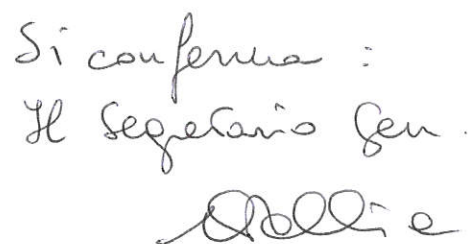 Si conferma :
Il Segretario Gen.